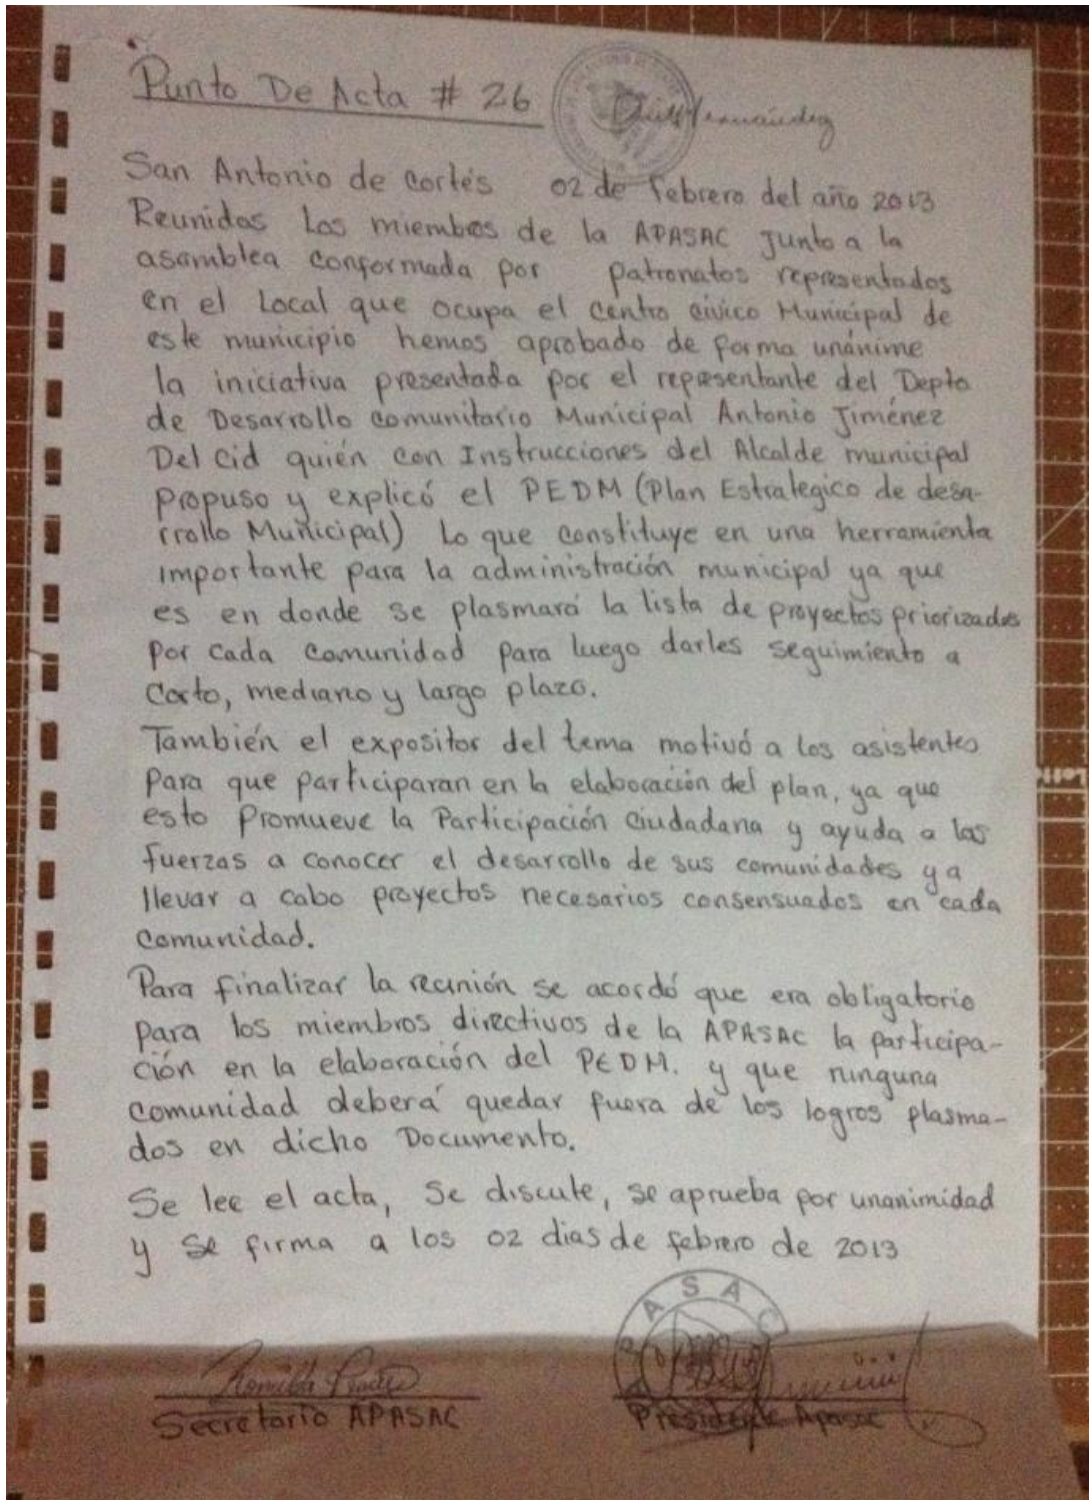 Punto De Acta # 26
Hernández
San Antonio de Cortés 02 de febrero del año 2013
Reunidos Los miembos de la APASAC junto a la
asamblea conformada por patronatos representados
en el Local que ocupa el centro cívico Municipal de
este municipio hemos aprobado de forma unánime
la iniciativa presentada por el representante del Depto
de Desarrollo comunitario Municipal Antonio Jiménez
Del Cid quién con Instrucciones del Alcalde municipal
Propuso y explicó el PEDM (Plan Estrategico de desa-
rrollo Municipal) Lo que constituye en una herramienta
importante para la administración municipal ya que
es en donde se plasmará la lista de proyectos priorizados
por cada comunidad para luego darles seguimiento a
Corto, mediano y largo plazo.
También el expositor del tema motivó a los asistentes
Para que participaran en la elaboración del plan, ya que
esto Promueve la Participación Ciudadana y ayuda a las
fuerzas a conocer el desarrollo de sus comunidades y a
llevar a cabo proyectos necesarios consensuados en cada
Comunidad.
Para finalizar la reunión se acordó que era obligatorio
para los miembros directivos de la APASAC la participa-
ción en la elaboración del PEDM. y que ninguna
comunidad deberá quedar fuera de los logros plasma-
dos en dicho Documento.
Se lee el acta, Se discute, se aprueba por unanimidad
y se firma a los 02 dias de febrero de 2013
APASAC
Secretario APASAC
Presidente Apasac